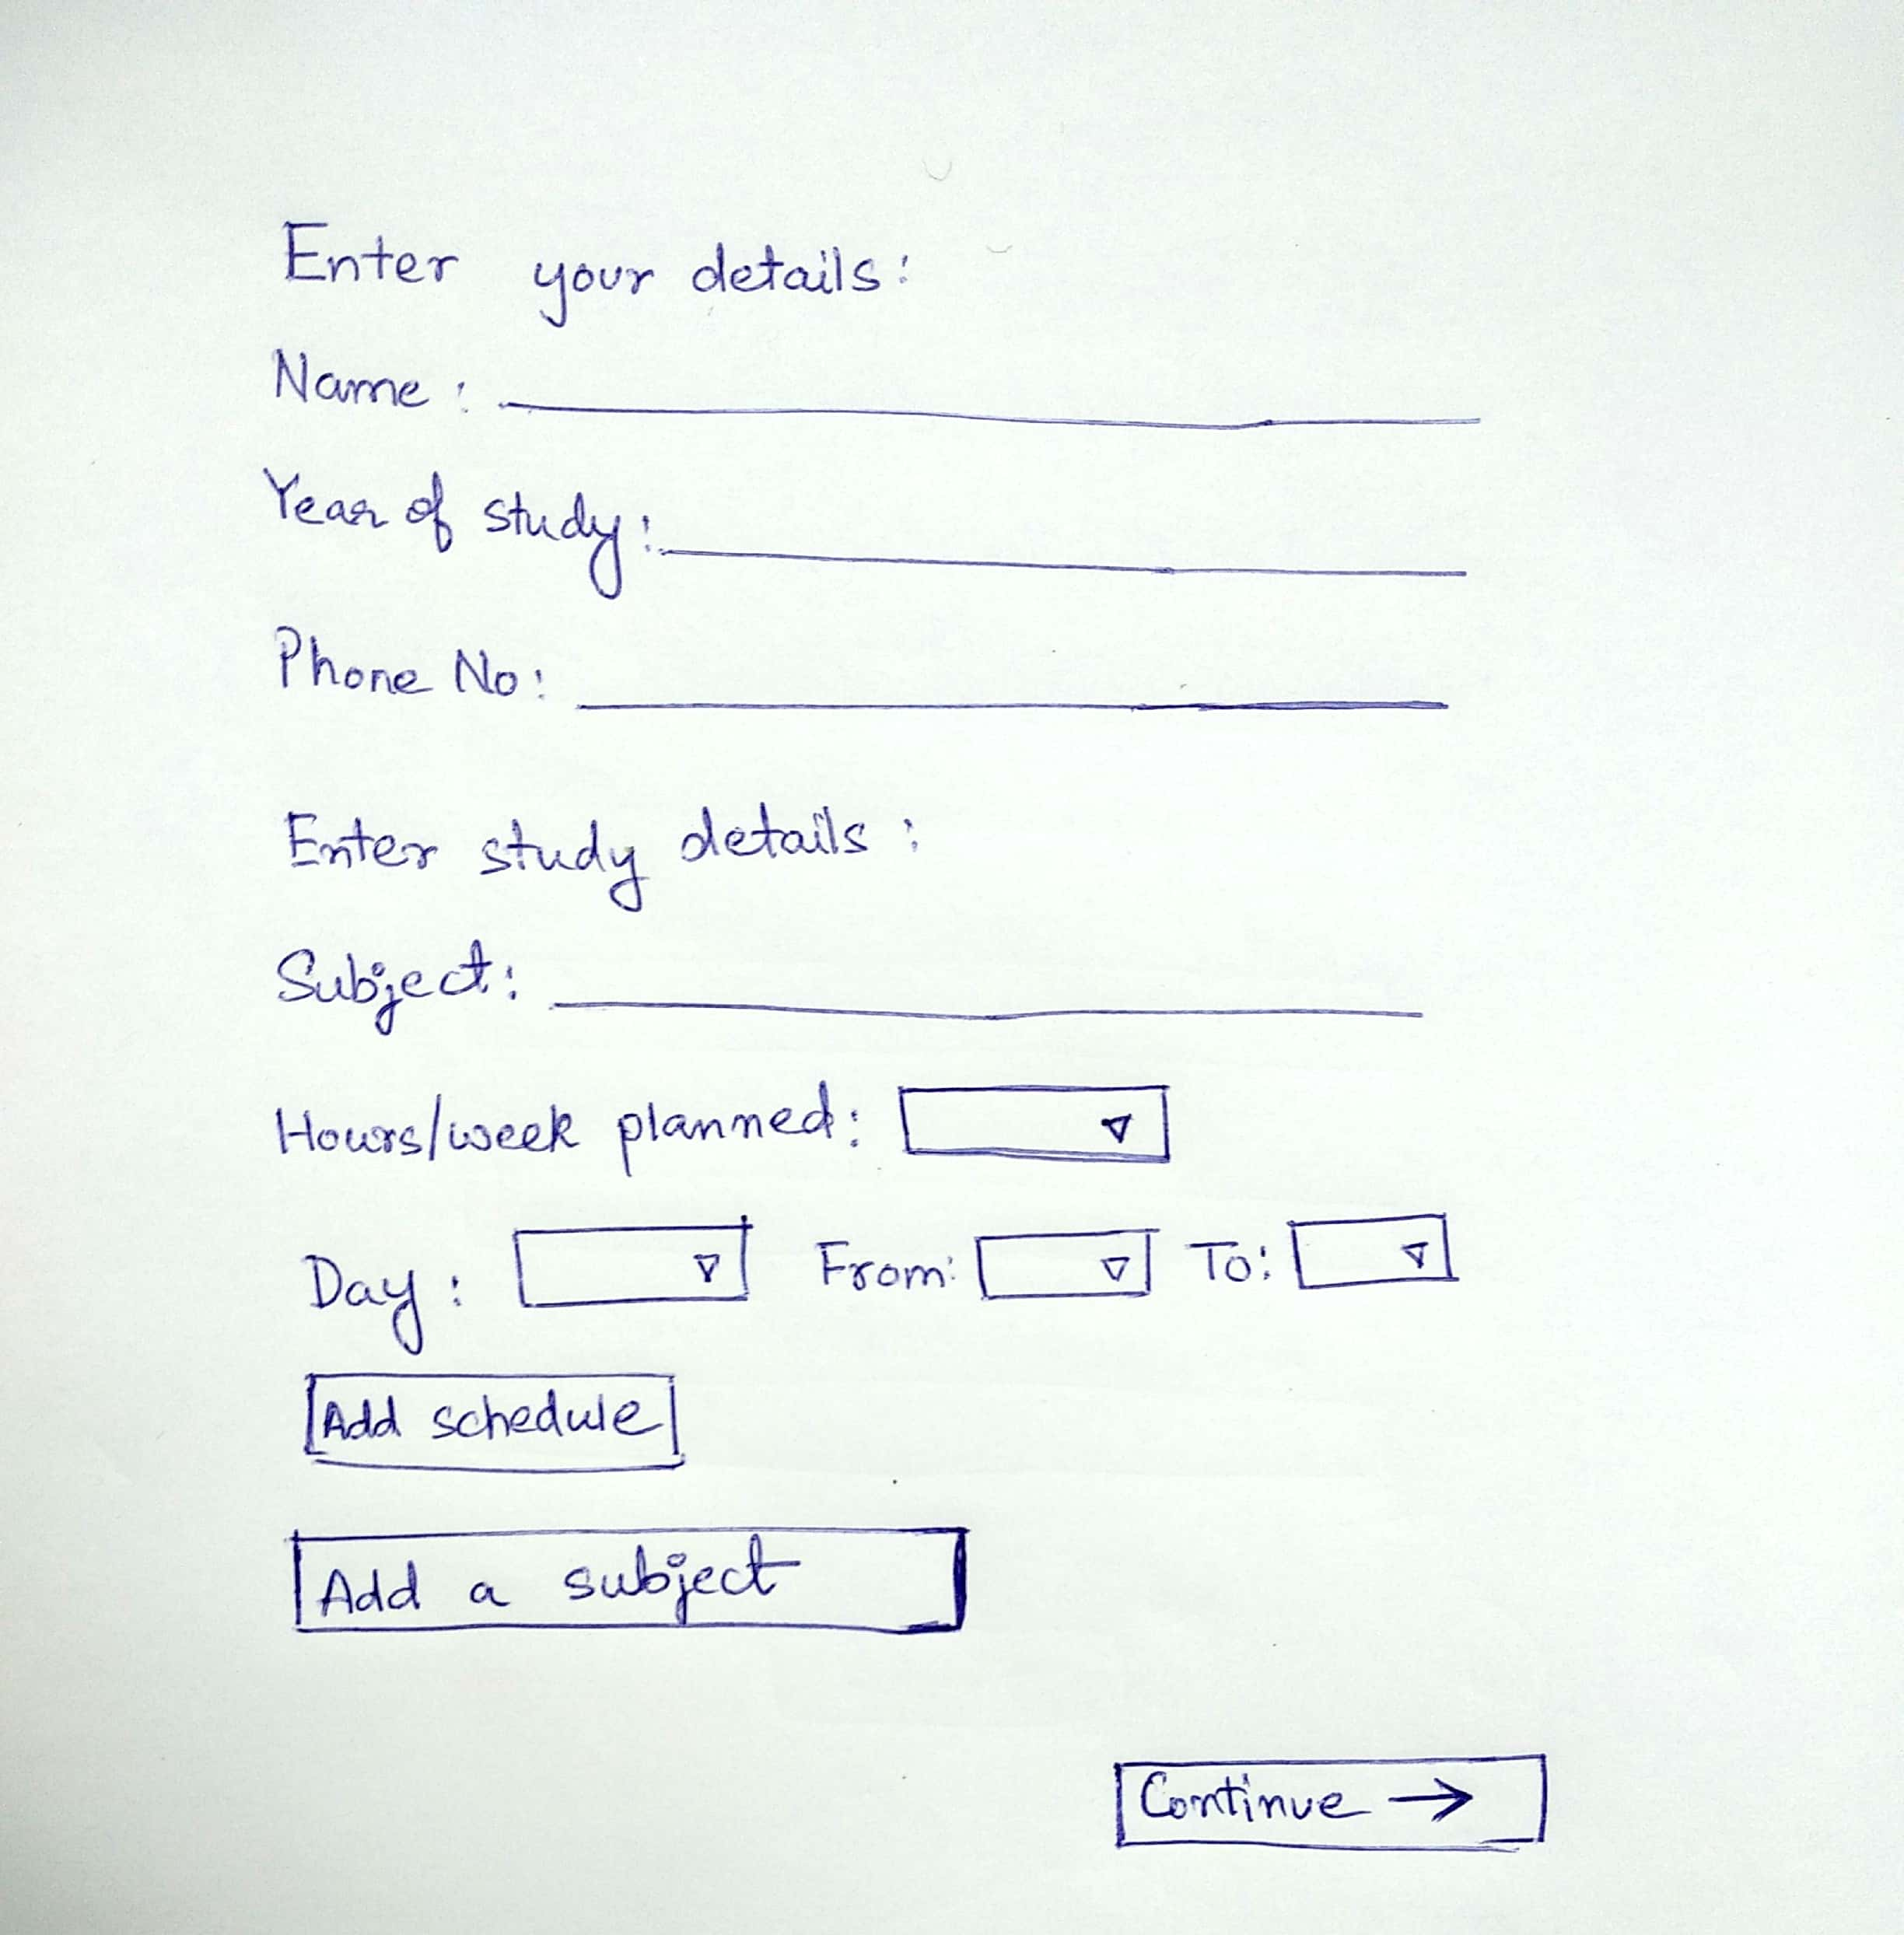 Enter your details:
Name:
Year of study:
Phone No:
Enter study details:
Subject:
Hours/week planned:
Day: From: To:
Add schedule
Add a subject
Continue →